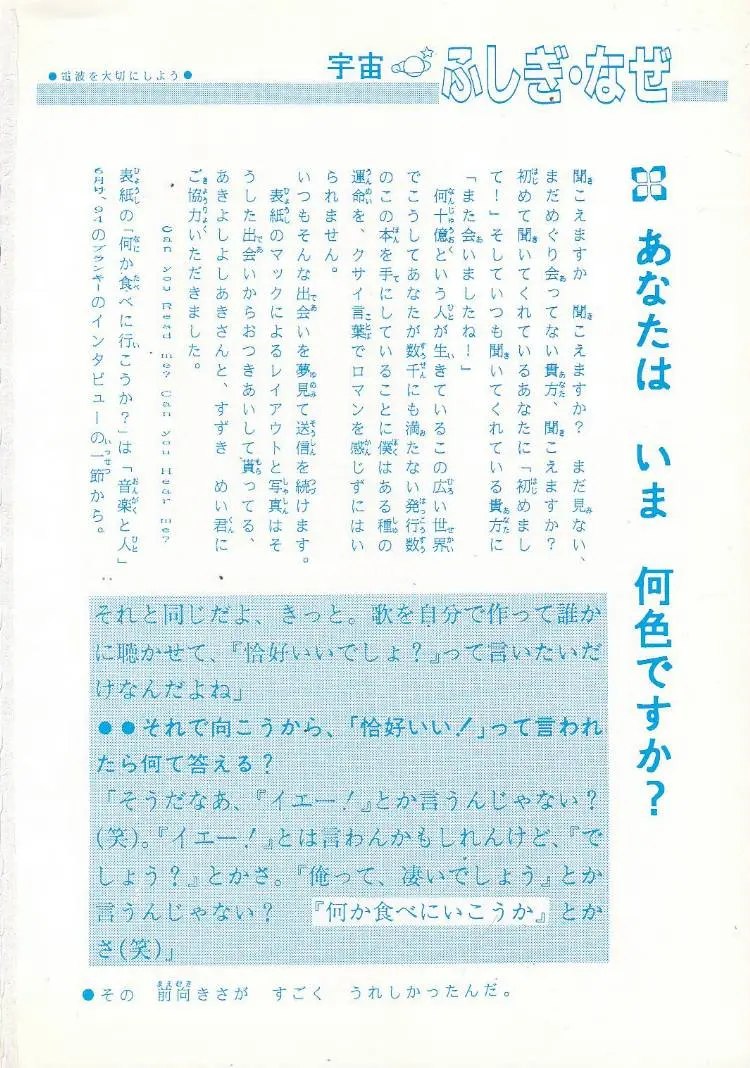 ●電波を大切にしよう●
宇宙 ふしぎ・なぜ
あなたは いま 何色ですか？
聞こえますか 聞こえますか？ まだ見ない、
まだめぐり会ってない貴方、聞こえますか？
初めて聞いてくれているあなたに「初めまし
て！」そしていつも聞いてくれている貴方に
「また会いましたね！」
何十億という人が生きているこの広い世界
でこうしてあなたが数千にも満たない発行数
のこの本を手にしていることに僕はある種の
運命を、クサイ言葉でロマンを感じずにはい
られません。
いつもそんな出会いを夢見て送信を続けます。
表紙のマックによるレイアウトと写真はそ
うした出会いからおつきあいして貰ってる、
あきよしよしあきさんと、すずき めい君に
ご協力いただきました。
Can you Read me? Can you Hear me?
表紙の「何か食べに行こうか？」は「音楽と人」
6月号、94のブランキーのインタビューの一節から。
それと同じだよ、きっと。歌を自分で作って誰か
に聴かせて、『恰好いいでしょ？』って言いたいだ
けなんだよね」
●●それで向こうから、「恰好いい！」って言われ
たら何て答える？
「そうだなあ、『イエー！』とか言うんじゃない？
(笑)。『イエー！』とは言わんかもしれんけど、『で
しょう？』とかさ。『俺って、凄いでしょう』とか
言うんじゃない？ 『何か食べにいこうか』とか
さ(笑)」
●その 前向きさが すごく うれしかったんだ。